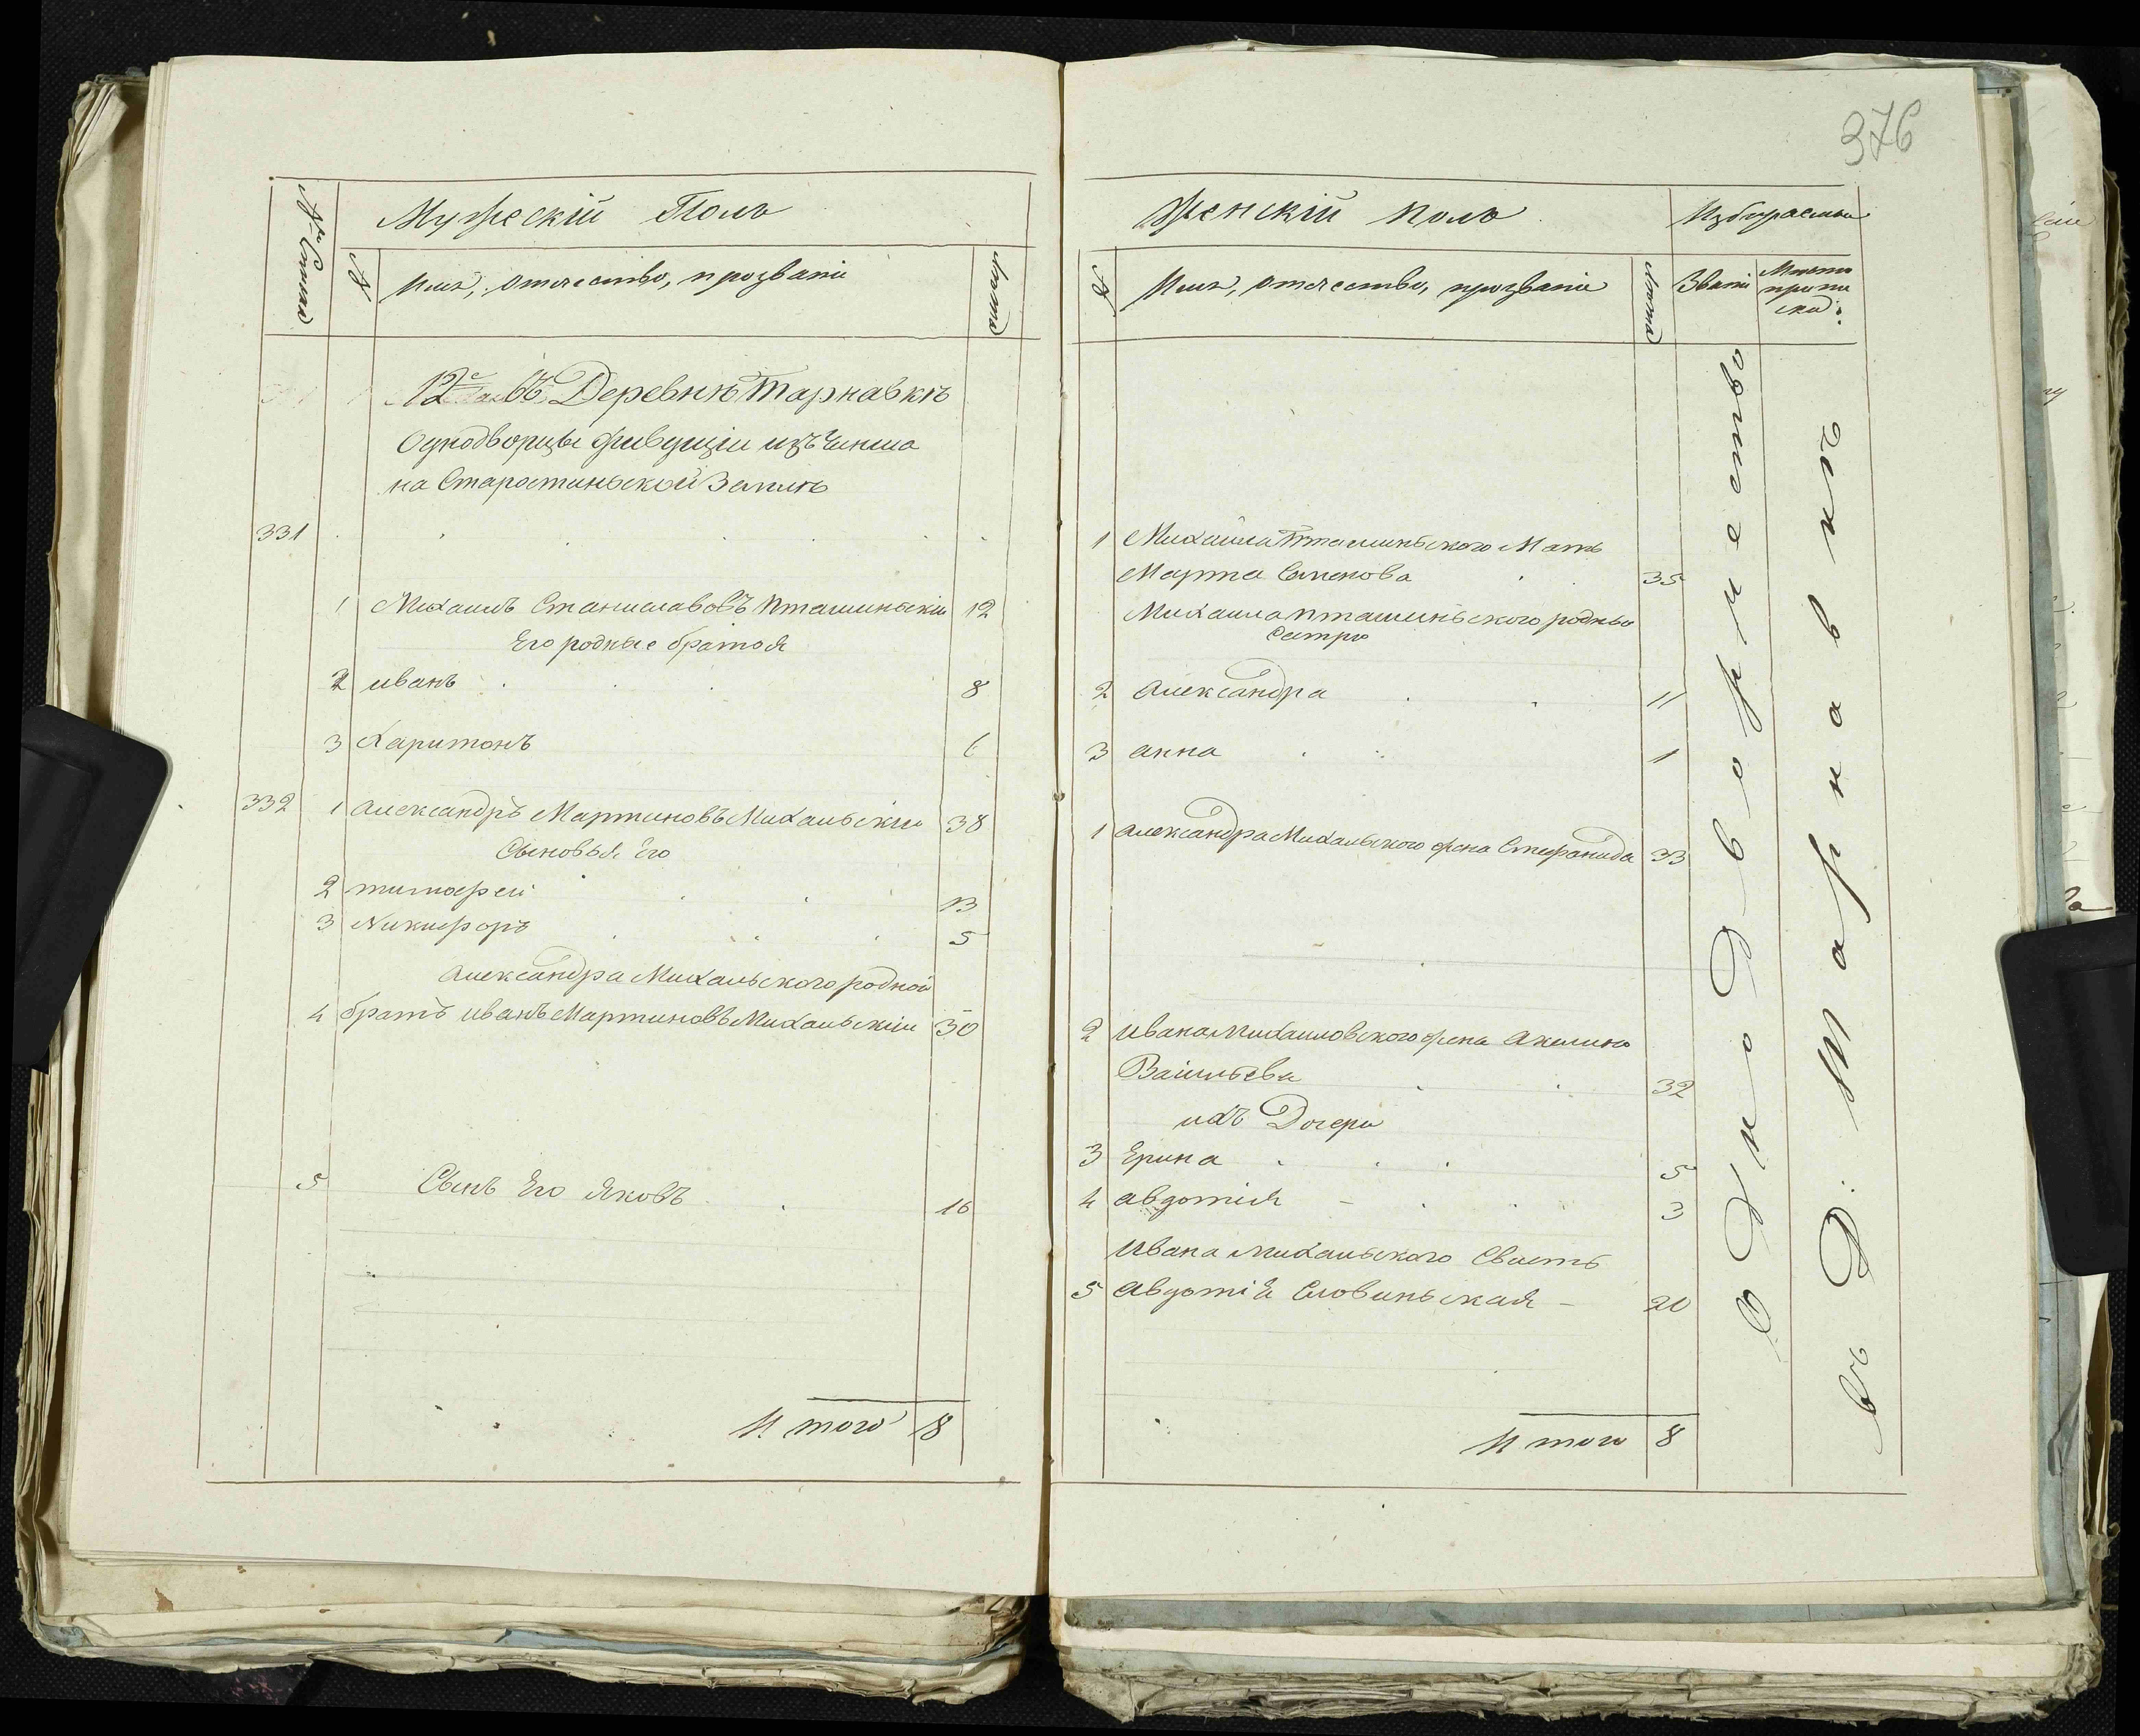 376
№ Семьи
Мужескій Полъ
№
Имя, отчество, прозваніе
Лѣта
12е Въ Деревнѣ Тарнавкѣ
Однодворцы живущіи изъ Чинша
на Старостинской Землѣ
331
1 Михаилъ Станиславовъ Пташинскій 12
Его родные братья
2 иванъ 8
3 Харитонъ 6
332 1 Александръ Мартиновъ Михальскій 38
Сыновья Его
2 тимофей 13
3 Никифоръ 5
Александра Михальского родной
4 братъ иванъ Мартиновъ Михальскій 30
5 Сынъ Его Яковъ 16
Итого 8
Женскій полъ
Избираемыи
№
Имя, отчество, прозваніе
Лѣта
Званіе
Место
припи
ски
1 Михайла Пташиньского Мать
Марта Семенова 35
Михаила пташиньского родные
Сестры
2 Александра 11
3 анна 1
1 Александра Михальского жена Стефанида 33
2 ивана Михаиловского жена Акилина
Васильева 32
ихъ Дочери
3 Ерина 5
4 авдотія 3
Ивана михальского Свисть
5 Авдотія Словиньская 20
Итого 8
Однодворчество
въ Д: Тарнавкѣ